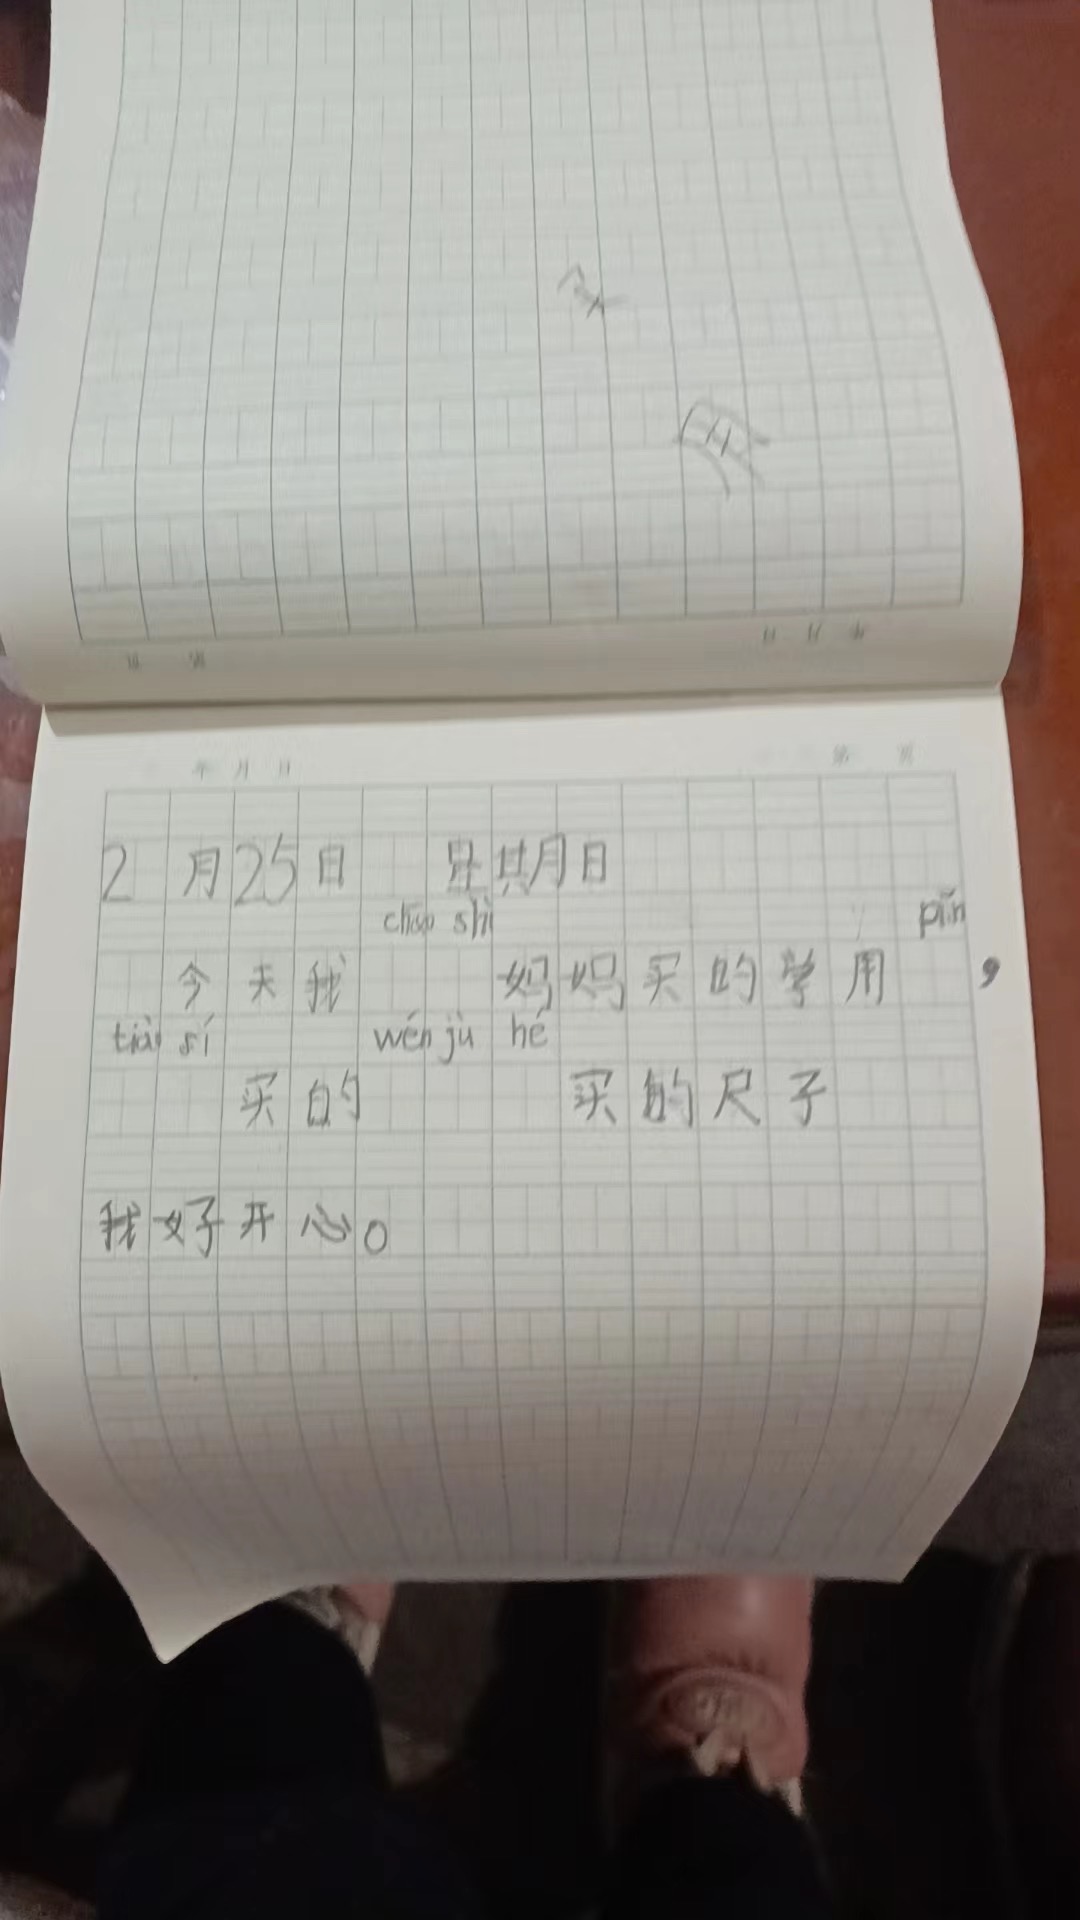 年 月 日
第 页
2月25日 星期日
chāo shì pǐn
今天我 妈妈买的学用 ，
tiào sí wén jù hé
买的 买的尺子
我好开心。